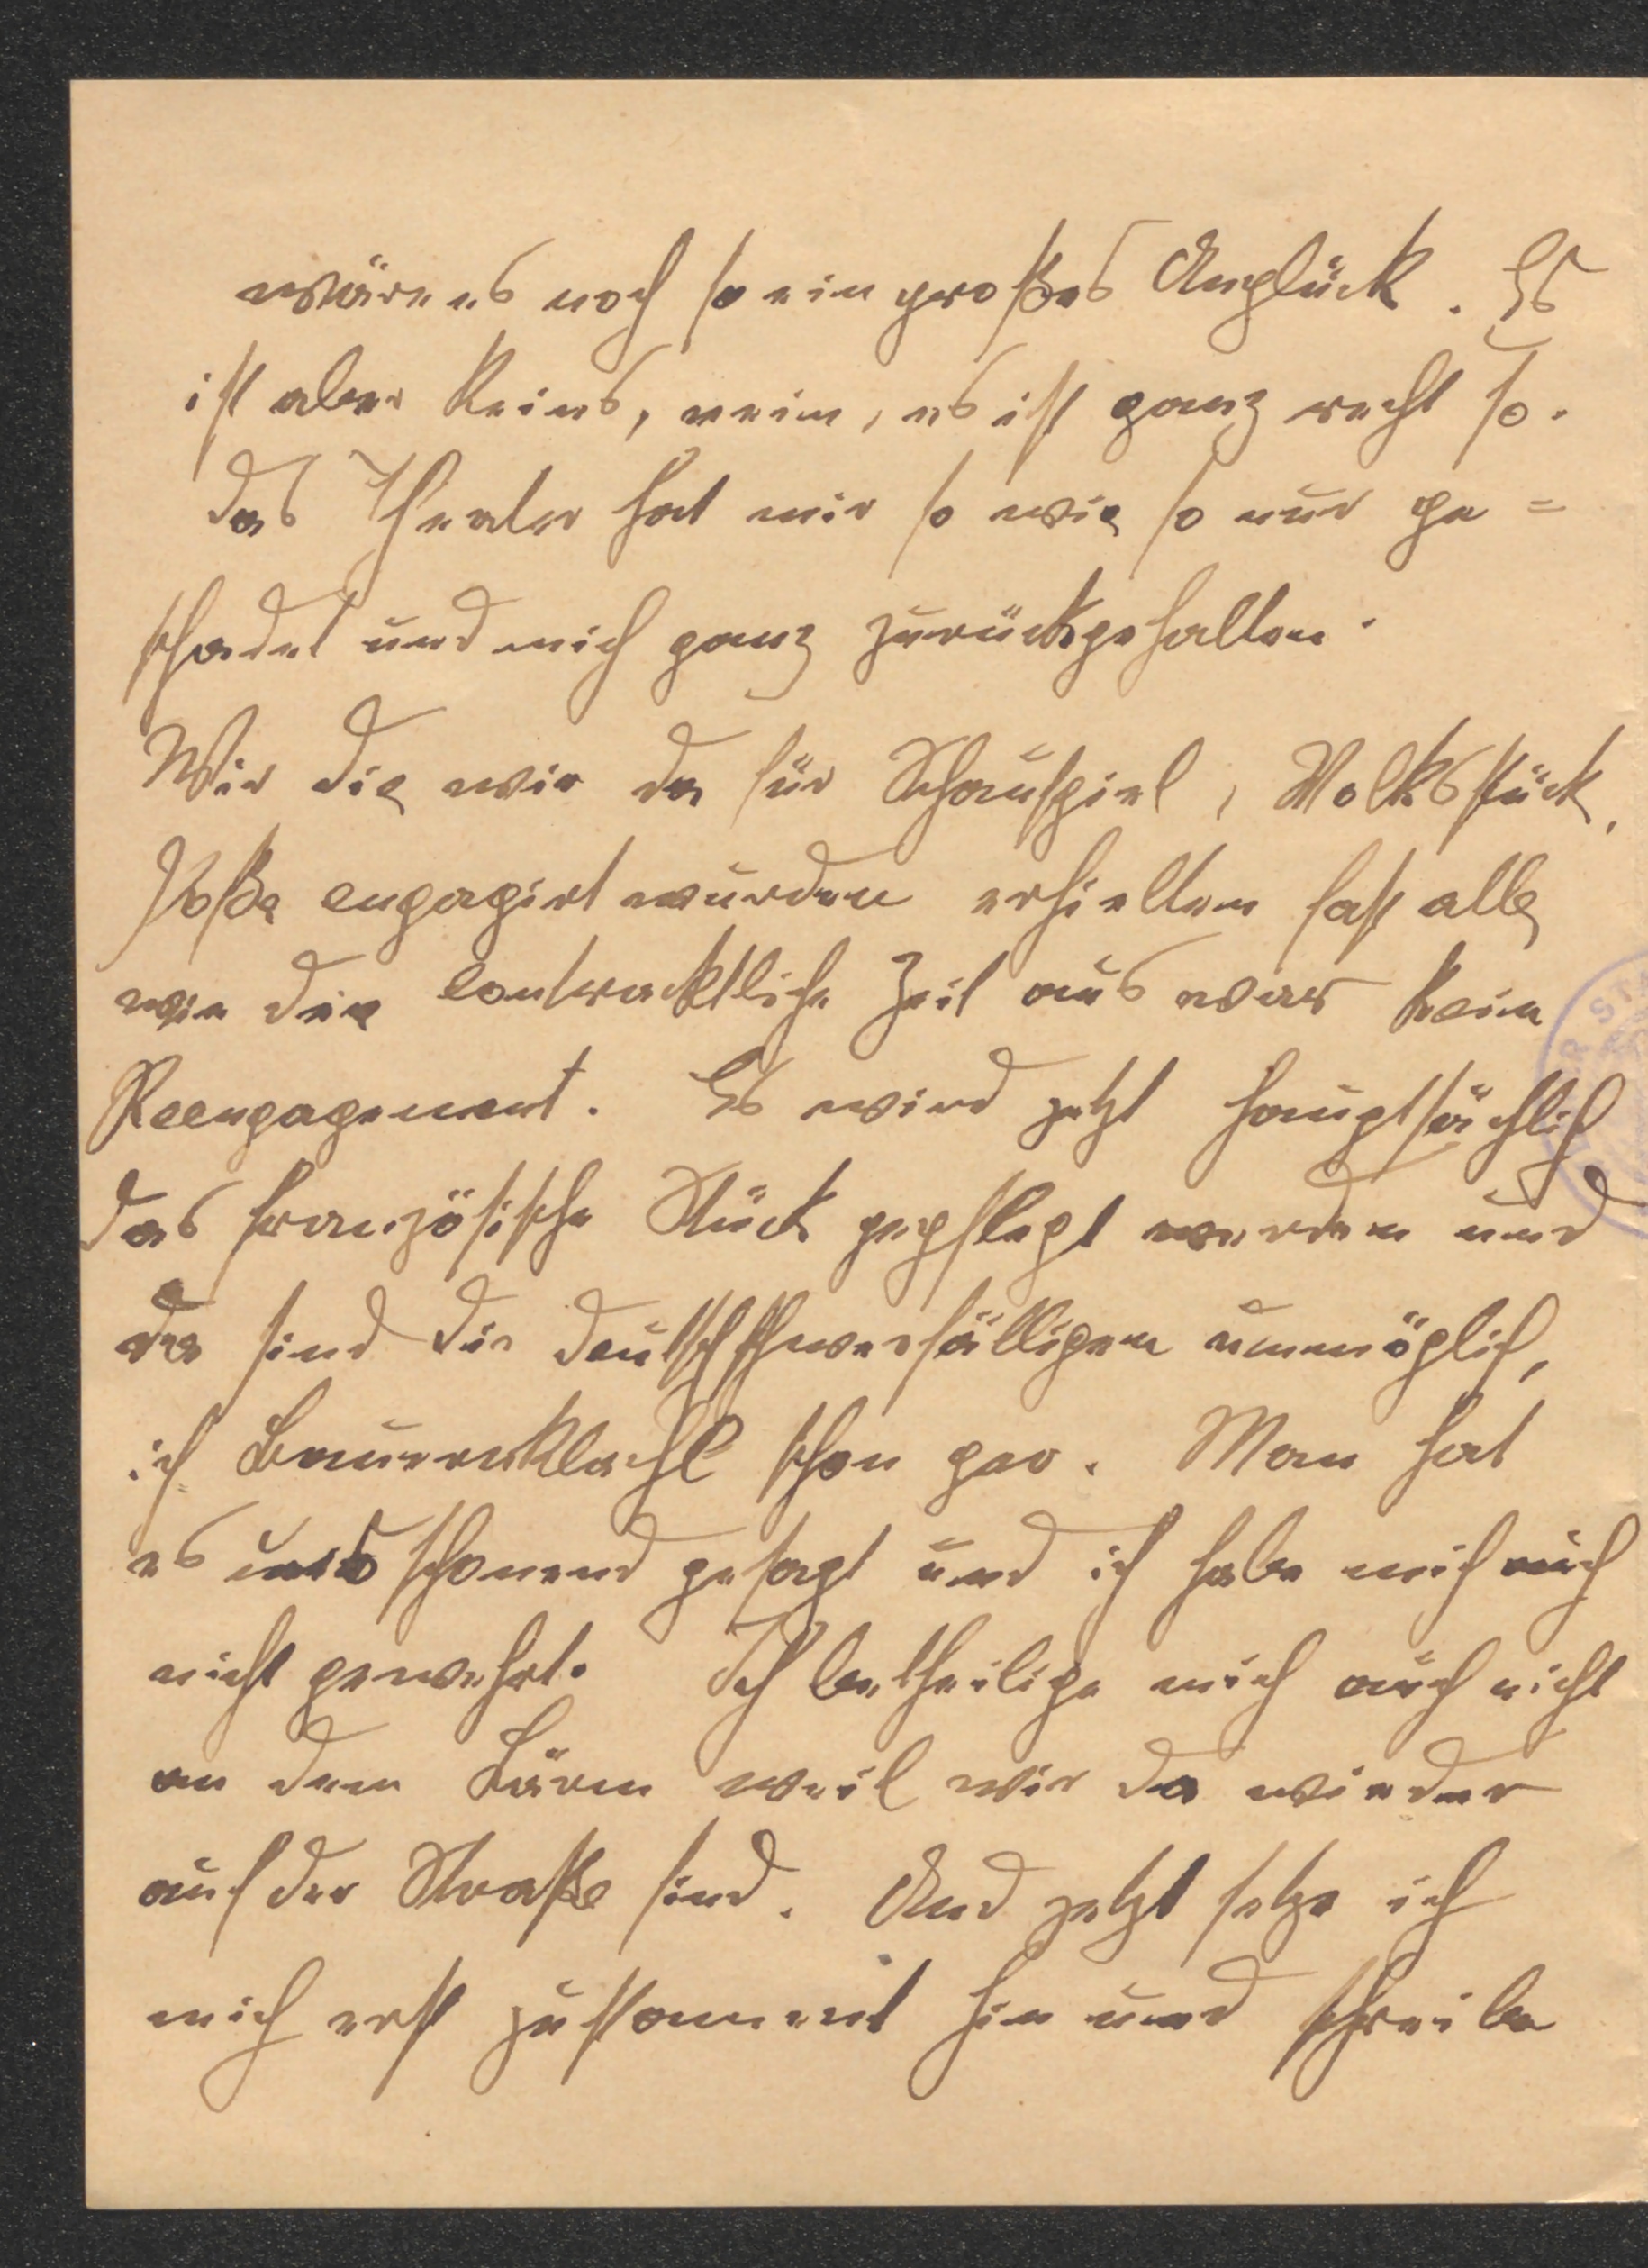 wäre es noch so ein großes Unglück. Es
ist aber keins, nein, es ist ganz recht so.
Das Theater hat mir so wie so nur ge=
schadet und mich ganz zurückgehalten.
Wir die wir da für Schauspiel, Volksstück,
Poße engagirt wurden erhielten fast alle
wie die contracktliche Zeit aus war kein
Reengagement. Es wird jetzt hauptsächlich
das französische Stück gepflegt werden und
da sind die deutschschwerfälligen unmöglich,
ich Bauernklachl schon gar. Man hat
es uns schonend gesagt und ich habe mich auch
nicht gewehrt. Ich betheilige mich auch nicht
an dem Lärm weil wir da wieder
auf der Straße sind. Und jetzt setze ich
mich erst justament hin und schreibe